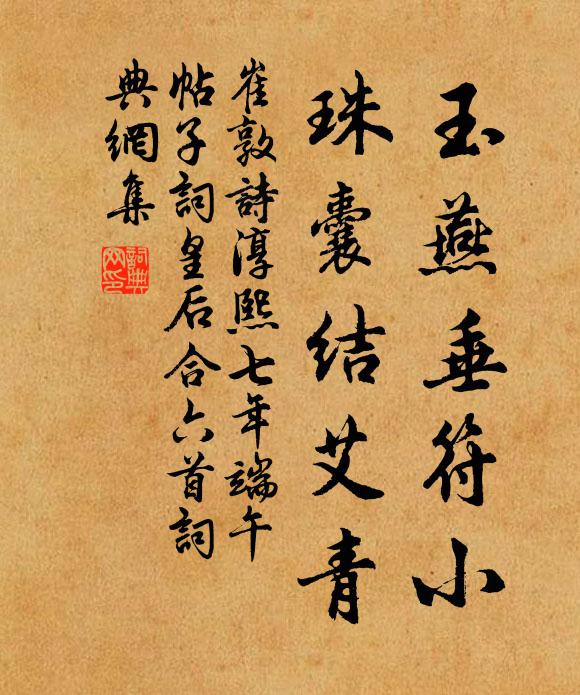 玉燕垂符小
珠囊结艾青
崔敦詩淳熙七年端午
帖子詞皇后合六首詞
典網集
詞典網印